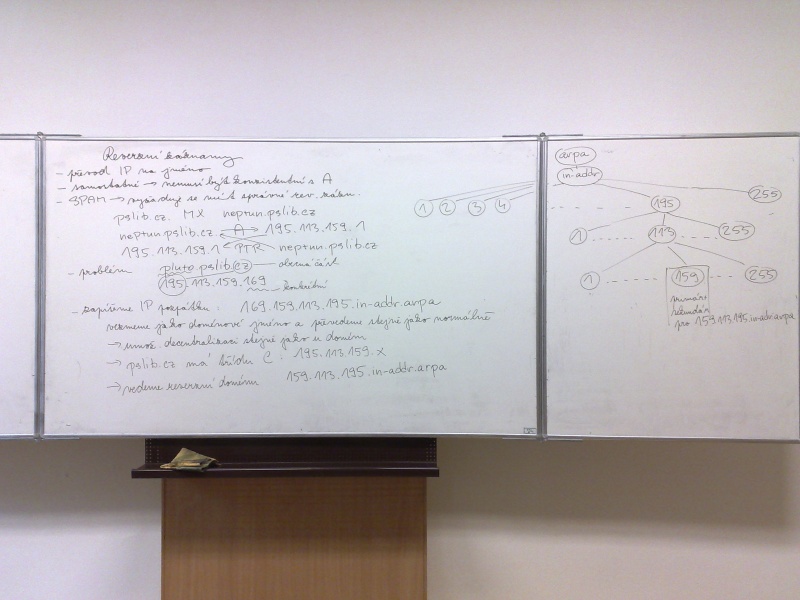 Reverzní záznamy
- převod IP na jméno
- samostatné → nemusí být konzistentní s A
- SPAM → vyžaduje se mít správné rev. zázn.
pslib.cz. MX neptun.pslib.cz
neptun.pslib.cz A 195.113.159.1
195.113.159.1 PTR neptun.pslib.cz
- problém pluto.pslib.cz obecná část
195.113.159.169 konkrétní
- zapíšeme IP pozpátku: 169.159.113.195.in-addr.arpa
vezmeme jako doménové jméno a převedeme stejně jako normálně
→ umož. decentralizaci stejně jako u domén
→ pslib.cz má třídu C: 195.113.159.x
→ vedeme reverzní doménu 159.113.195.in-addr.arpa
1 2 3 4
arpa
in-addr
195 255
1 113 255
1 159 255
primární
sekundár
pro 159.113.195.in-addr.arpa